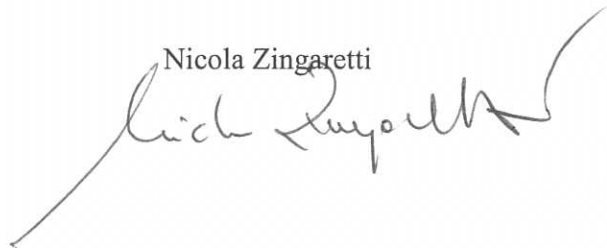 Nicola Zingaretti
Nicola Zingaretti